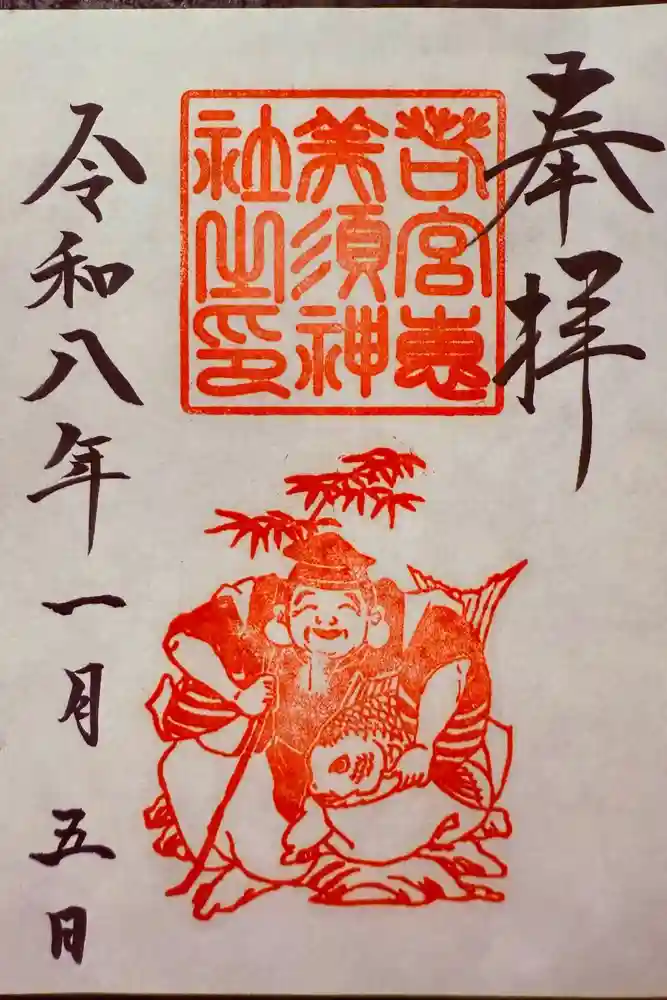 奉拝
若宮恵
美須神
社之印
令和八年一月五日